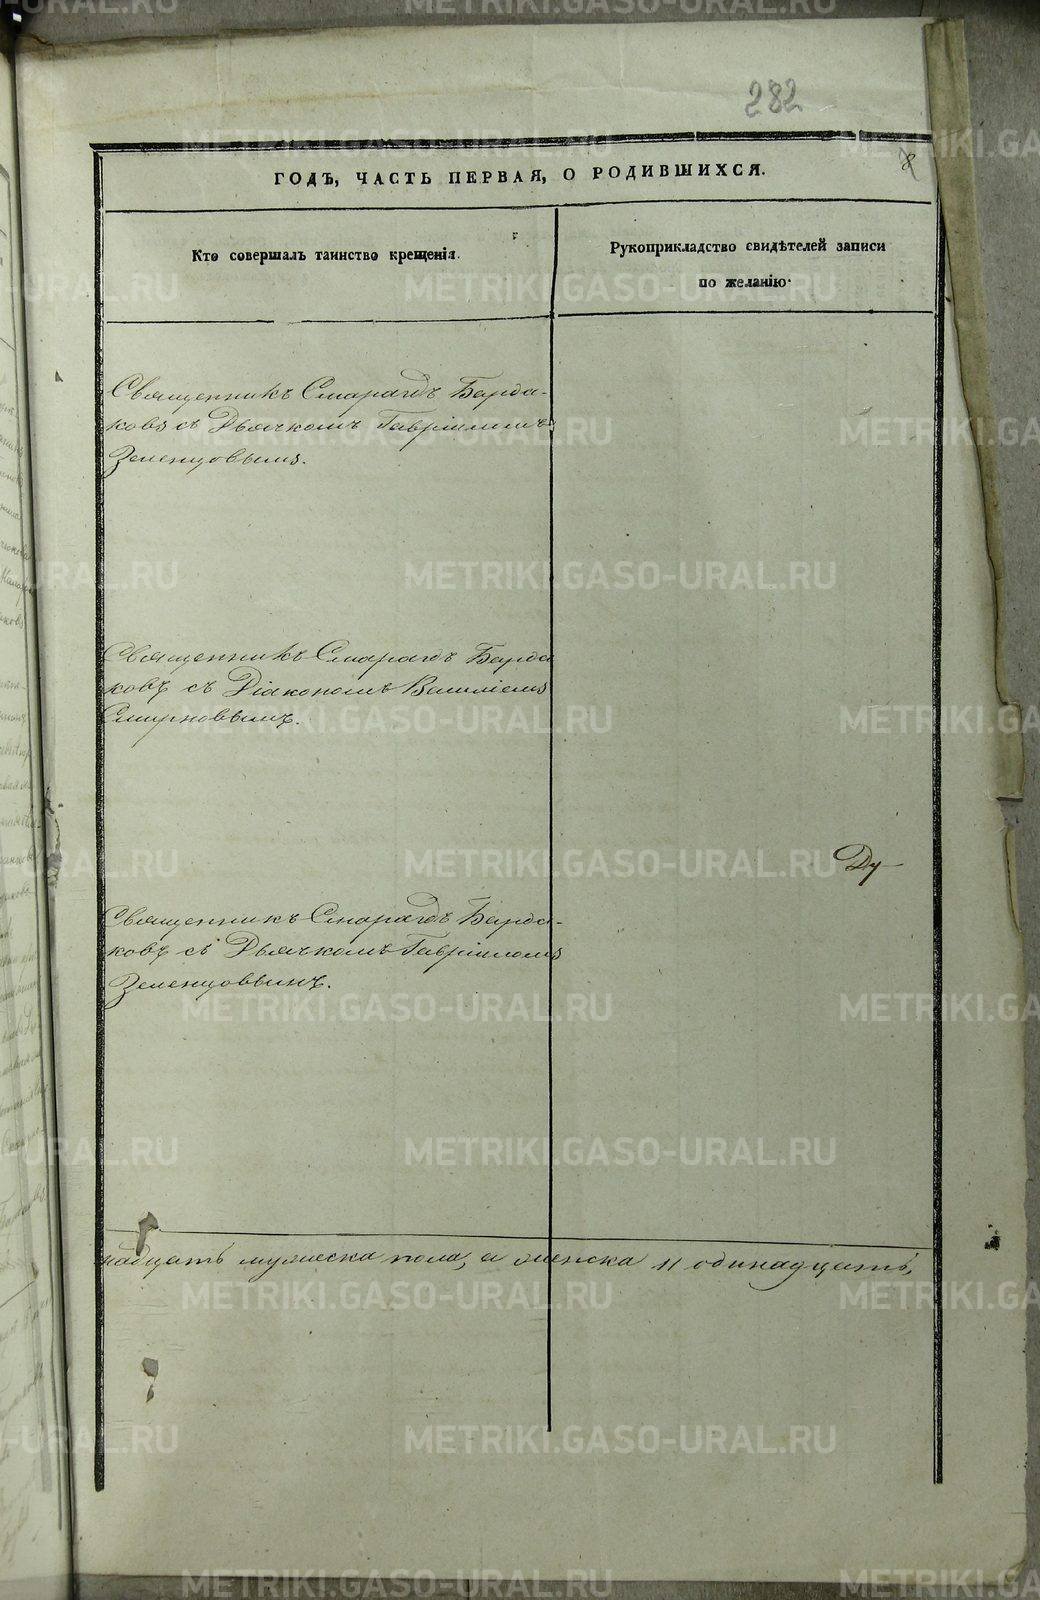 282
8
ГОДЪ, ЧАСТЬ ПЕРВАЯ, О РОДИВШИХСЯ.
Кто совершалъ таинство крещенія.
Рукоприкладство свидѣтелей записи
по желанію.
Священникъ Смарагдъ Барда-
ковъ съ Дьячкомъ Гавріиломъ
Зеленцовымъ.
Священникъ Смарагдъ Барда
ковъ съ Діакономъ Василіемъ
Смирновымъ.
Ду-
Священникъ Смарагдъ Барда-
ковъ съ Дьячкомъ Гавріиломъ
Зеленцовымъ.
надцать мужеска пола, а женска 11 одинадцать,
METRIKI.GASO-URAL.RU